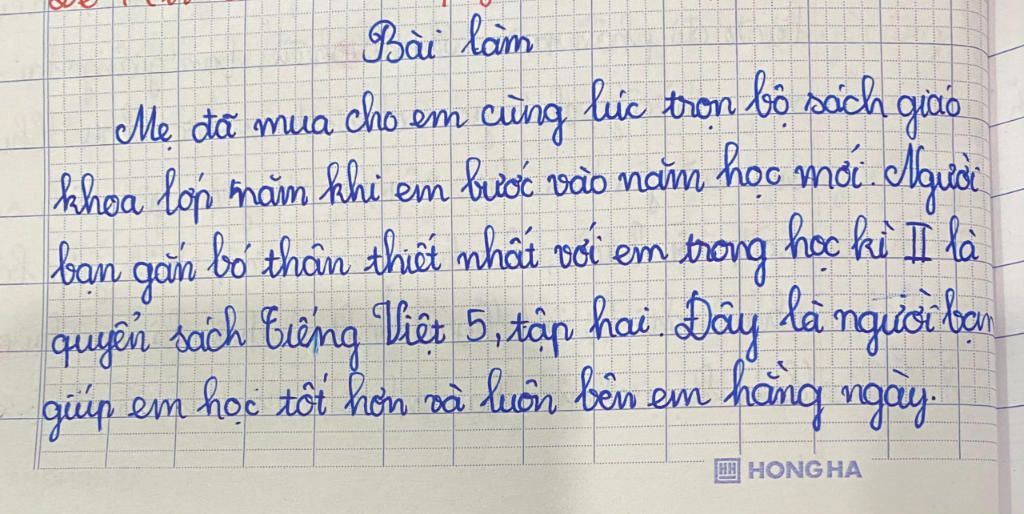 Bài làm
Mẹ đã mua cho em cùng lúc trọn bộ sách giáo
khoa lớp năm khi em bước vào năm học mới. Người
bạn gắn bó thân thiết nhất với em trong học kì II là
quyển sách Tiếng Việt 5, tập hai. Đây là người bạn
giúp em học tốt hơn và luôn bên em hằng ngày.
HH HONG HA